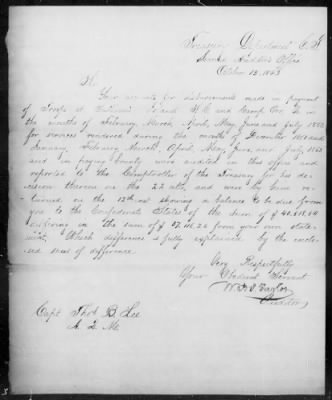 Treasury Department C.S.
Second Auditor's Office
October 13, 1863
Sir
Your accounts for disbursements made in payment
of Troops at Island N.C and Camp
the months of February, March, April, May, June and July 1862
for services rendered during the months of December 1861 and
January, February, March, April, May, June, and July 1862
and in paying bounty were audited in this office and
reported to the Comptroller of the Treasury for his de-
cision thereon on the 22 ulto, and were by him re-
turned on the 12th as showing a balance to be due from
you to the Confederate States of the sum of $
differing in the sum of $ from your own state-
ment, Which difference is fully explained by the enclo-
sed sheet of difference.
Very Respectfully
Your Obedient Servant
W. H. S. Taylor
Auditor
Capt Thos B. Lee
A. Q. M.